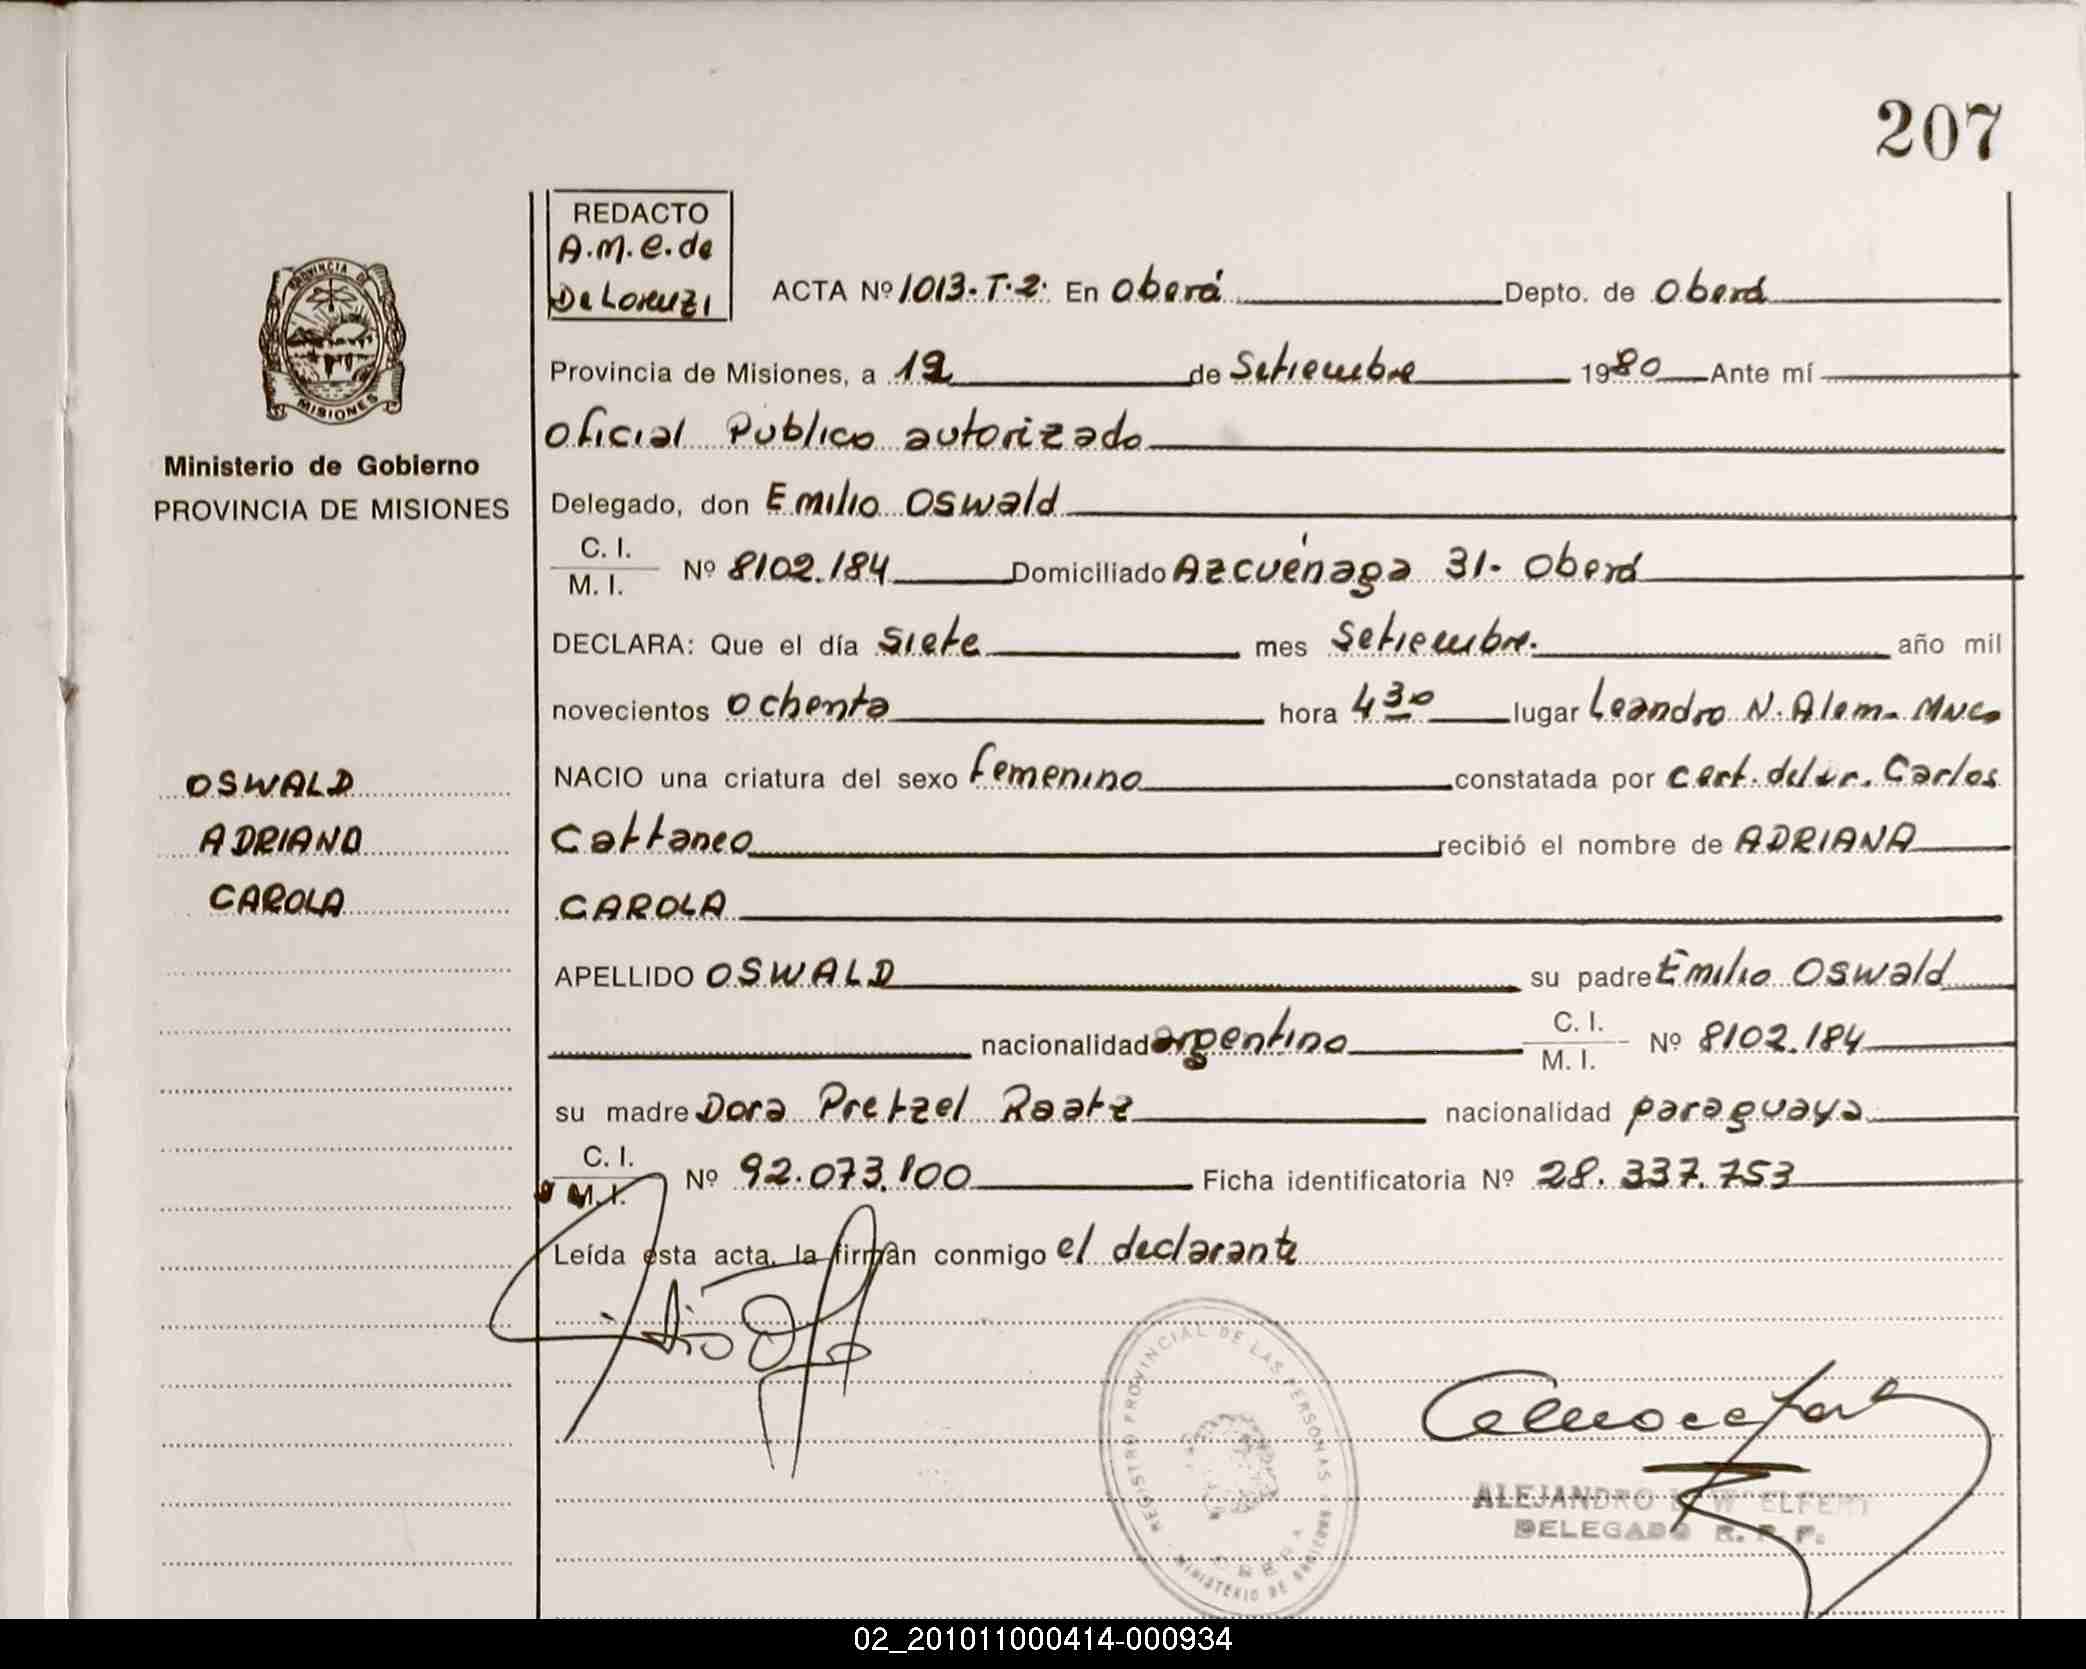 207
REDACTO
A.M.E. de
De Lorenzi
ACTA Nº 1013-T.2. En Oberá Depto. de Oberá
Provincia de Misiones, a 12 de Setiembre 1980 Ante mí
Oficial Publico autorizado
Delegado, don Emilio Oswald
C. I.
M. I. Nº 8102.184 Domiciliado Azcuénaga 31- Oberá
DECLARA: Que el día siete mes Setiembre. año mil
novecientos ochenta hora 4 30 lugar Leandro N. Alem- Mnes
NACIO una criatura del sexo femenino constatada por cert. del dr. Carlos
Cattaneo recibió el nombre de ADRIANA
CAROLA
APELLIDO OSWALD su padre Emilio Oswald
nacionalidad argentino C. I.
M. I. Nº 8102.184
su madre Dora Pretzel Raatz nacionalidad paraguaya
C. I.
M. I. Nº 92.073.100 Ficha identificatoria Nº 28.337.753
Leída esta acta, la firman conmigo el declarante
PROVINCIA DE
MISIONES
Ministerio de Gobierno
PROVINCIA DE MISIONES
OSWALD
ADRIANA
CAROLA
REGISTRO PROVINCIAL DE LAS PERSONAS
MINISTERIO DE GOBIERNO
OBERA
ALEJANDRO
DELEGADO R. P. P.
02_201011000414-000934